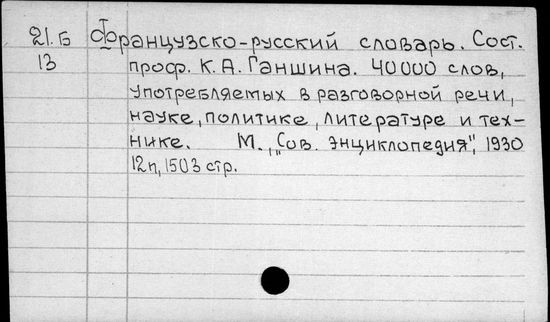 21.Б Французско-русский словарь. Сост.
13 проф. К. А. Ганшина. 40000 слов,
употребляемых в разговорной речи,
науке, политике, литературе и тех-
нике. М., „Сов. энциклопедия", 1930
12п, 1503 стр.